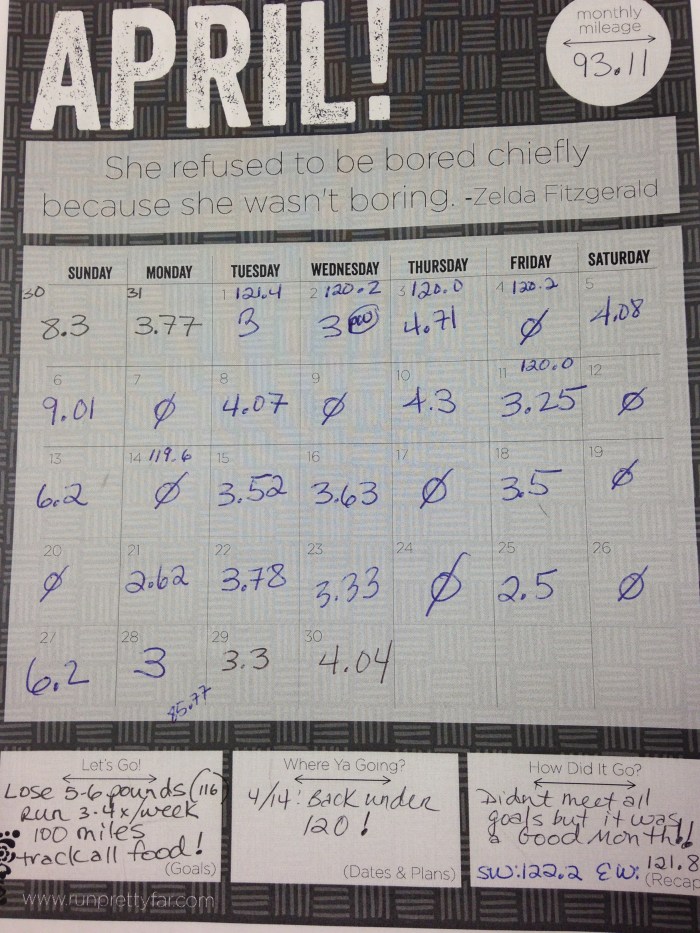 APRIL!
monthly
mileage
93.11
She refused to be bored chiefly
because she wasn't boring. -Zelda Fitzgerald
SUNDAY MONDAY TUESDAY WEDNESDAY THURSDAY FRIDAY SATURDAY
30 31 1 121.4 2 120.2 3 120.0 4 120.2 5
8.3 3.77 3 3 4.71 Ø 4.08
6 7 8 9 10 11 120.0 12
9.01 Ø 4.07 Ø 4.3 3.25 Ø
13 14 119.6 15 16 17 18 19
6.2 Ø 3.52 3.63 Ø 3.5 Ø
20 21 22 23 24 25 26
Ø 2.62 3.78 3.33 Ø 2.5 Ø
27 28 29 30
6.2 3 3.3 4.04
85.77
Let's Go!
Lose 5-6 pounds (116)
Run 3-4x/week
100 miles
track all food!
(Goals)
Where Ya Going?
4/14: Back under
120!
(Dates & Plans)
How Did It Go?
Didnt meet all
goals but it was
a Good Month!!
SW:122.2 EW: 121.8
(Recap
www.runprettyfar.com